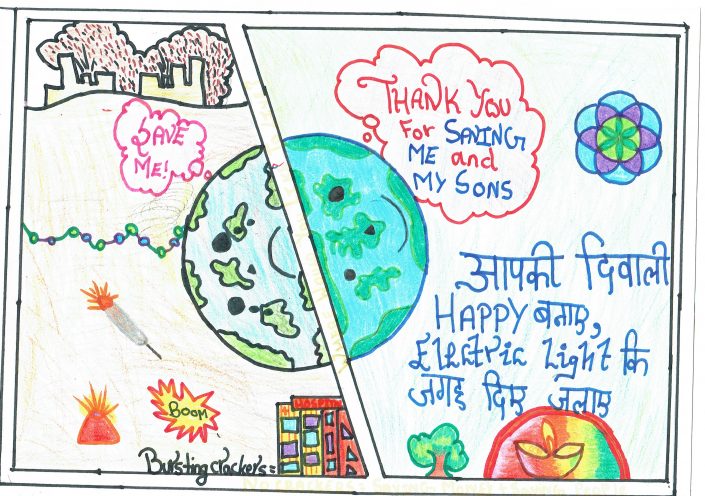 SAVE
ME!
BOOM
HOSPITA
Bursting crackers =
THANK YOU
For SAVING
ME and
MY SONS
आपकी दिवाली
HAPPY बनाए,
Electric Light कि
जगह दिए जलाए